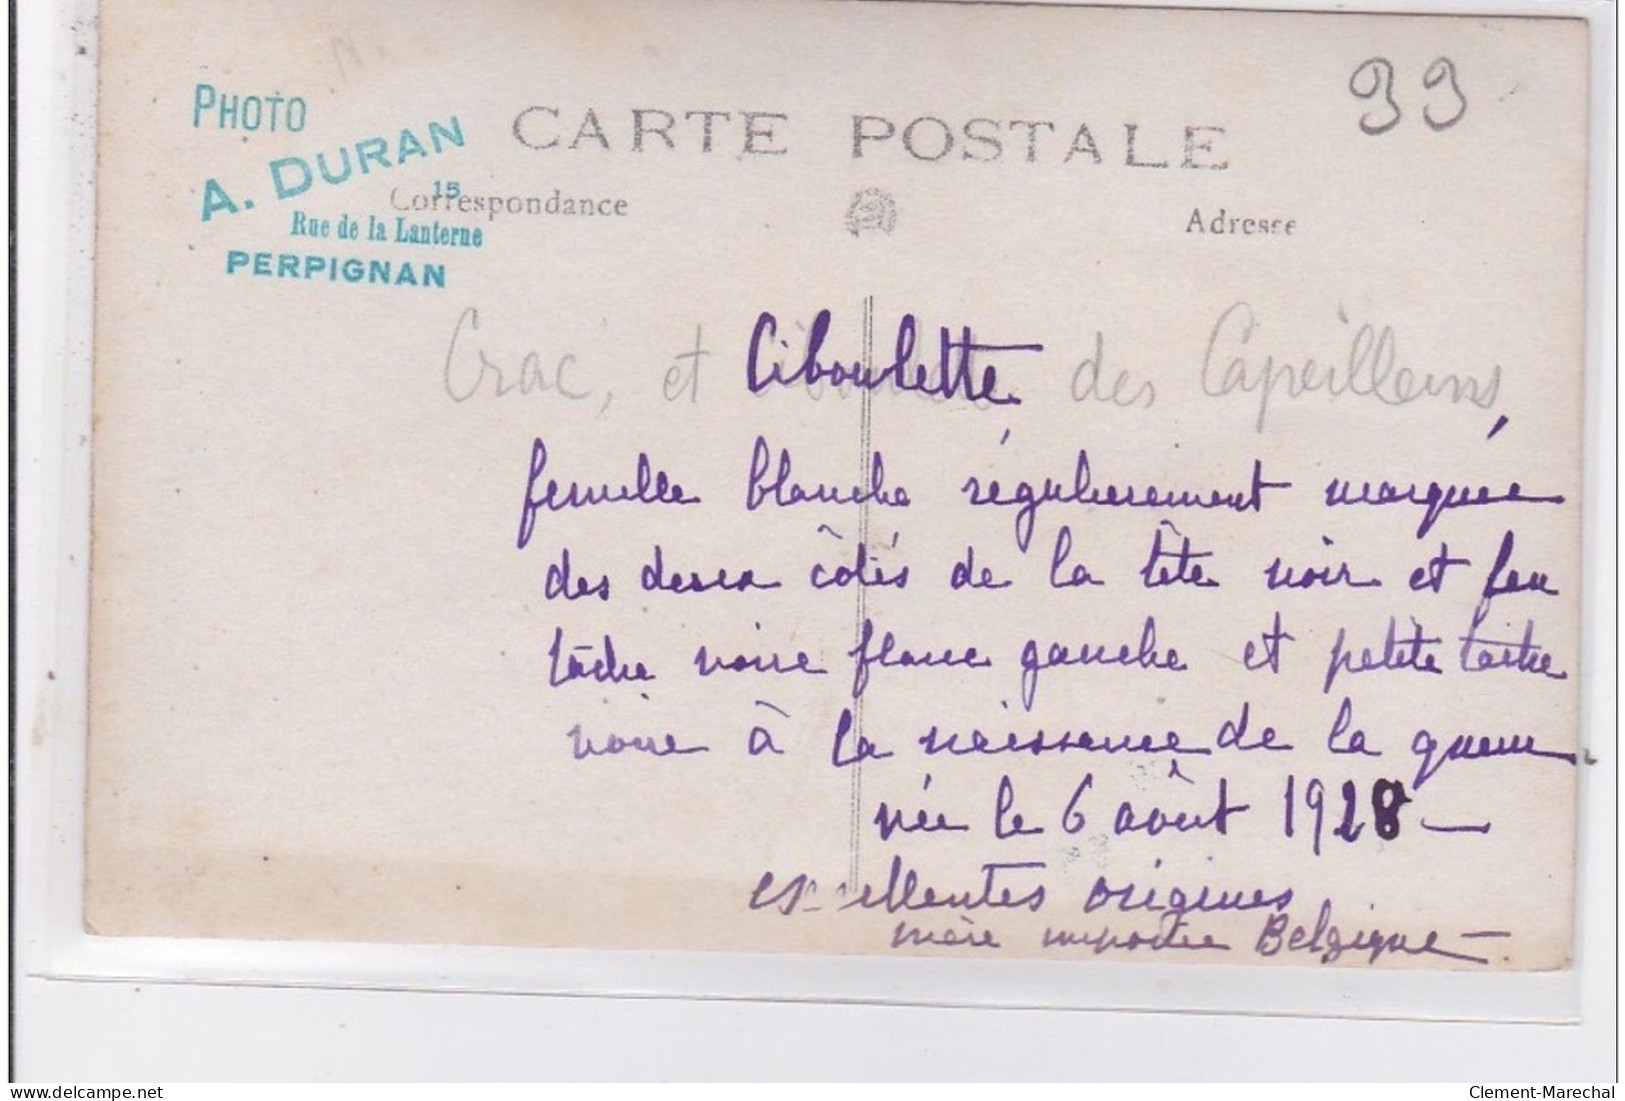 PHOTO
A. DURAN
15
Rue de la Lanterne
PERPIGNAN
CARTE POSTALE
Correspondance
Adresse
99
Crac, et Ciboulette des Capeillans,
femelle blanche régulièrement marquée
des deux côtés de la tête noir et feu
tâche noire flanc gauche et petite tâche
noire à la naissance de la queue
née le 6 août 1928 —
excellentes origines
mère importée Belgique —
delcampe.net
Clement-Marechal